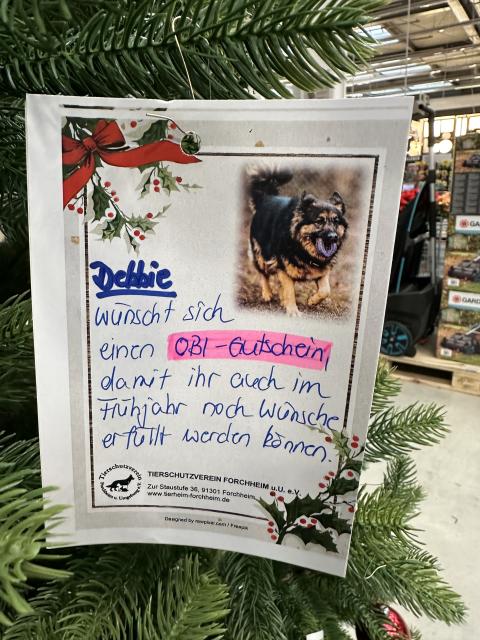 Debbie
wünscht sich
einen OBI-Gutschein,
damit ihr auch im
Frühjahr noch Wünsche
erfüllt werden können.
Tierschutzverein
TIERSCHUTZVEREIN FORCHHEIM u.U. e.V.
Zur Staustufe 36, 91301 Forchheim
www.tierheim-forchheim.de
Designed by rawpixel.com / Freepik
GARD